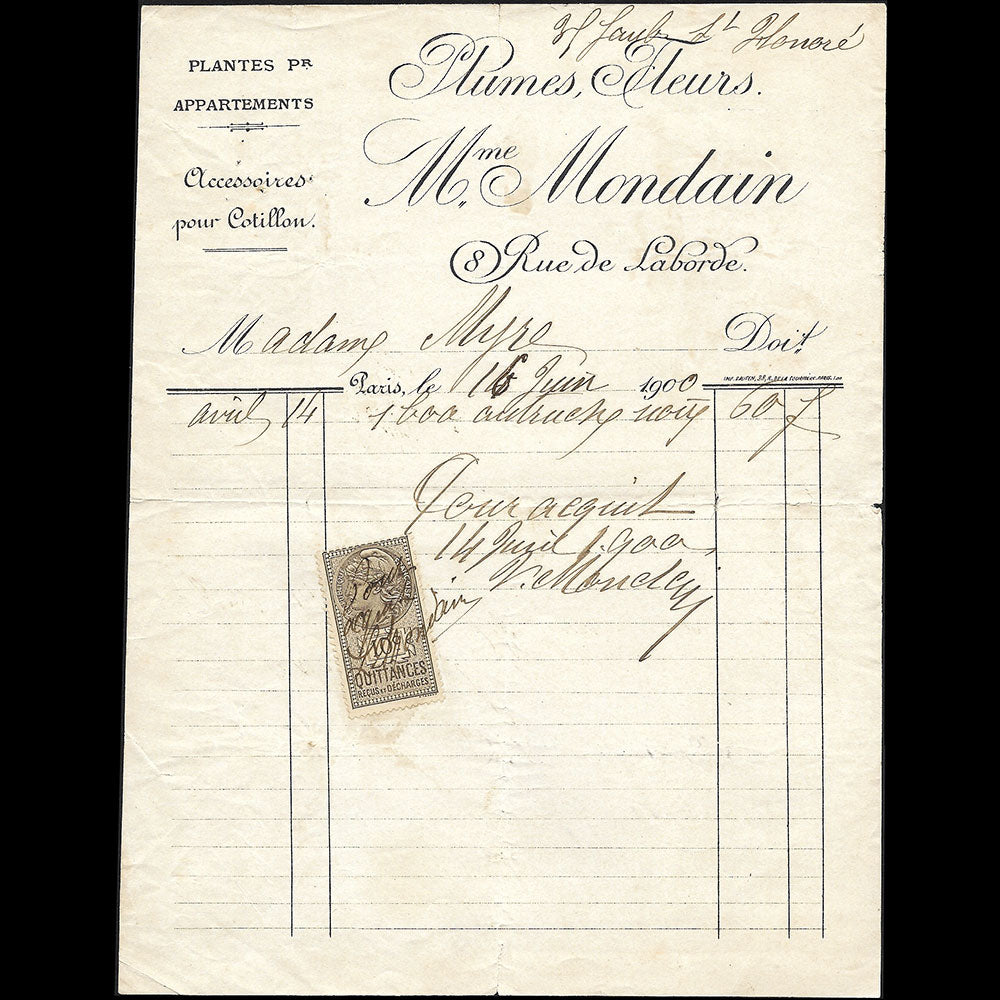 Faub St Honoré
PLANTES PR
APPARTEMENTS
Accessoires
pour Cotillon.
Plumes, Fleurs.
Mme Mondain
8 Rue de Laborde.
Madame Myre Doit
Paris, le 16 Juin 1900
avril 14 1 boa autruche noir 60 f
Pour acquit
14 Juin 1900
V. Mondain
10c
QUITTANCES
REÇUS ET DÉCHARGES